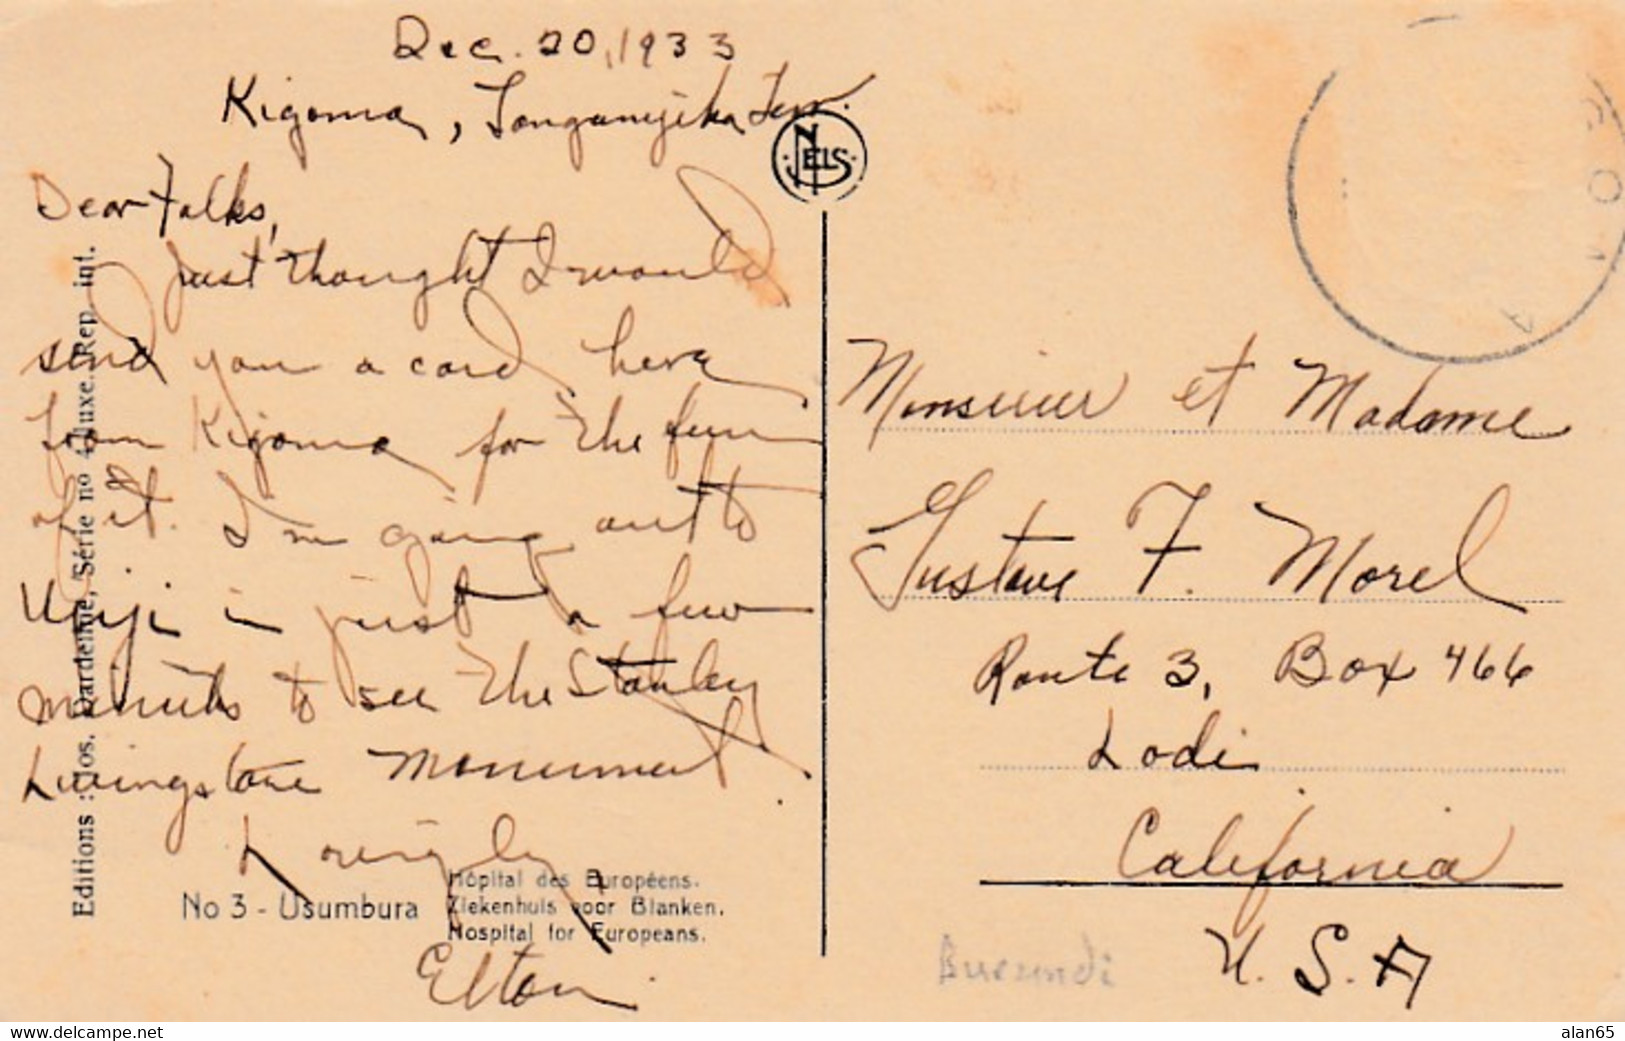 Dec. 20, 1933
Kigoma, Tanganyika Terr.
Dear Folks,
Just thought I would
send you a card here
from Kigoma for the fun
of it. I'm going out to
Ujiji in just a few
minutes to see the Stanley
Livingstone Monument.
Lovingly
Elton
Editions : Jos. Dardenne, Série no 4 Luxe. Rep. int.
No 3 - Usumbura
Hôpital des Européens.
Ziekenhuis voor Blanken.
Hospital for Europeans.
NELS
Monsieur et Madame
Gustave F. Morel
Route 3, Box 466
Lodi
California
U. S. A
Burundi
GOMA
alan65
delcampe.net